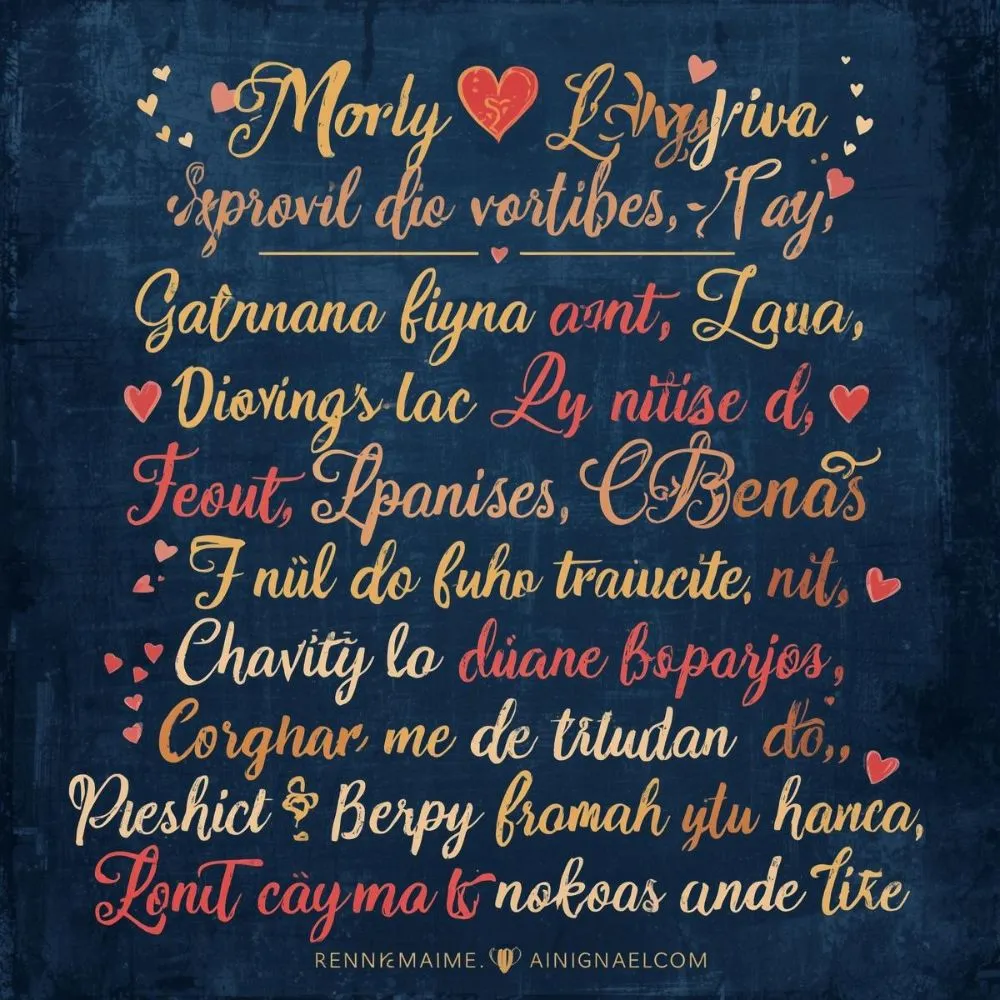 Morly
Sxprovil dio vortibes, Tay,
Gatnnana fiyna asnt, Laua,
Dioving's lac Ly nitise d,
Feout, Lpanises, CBenas
F nül do fuho traiucite, nit,
Chavity lo düane boparjos,
Corghar me de titudan do,,
Pieshict & Berpy framah ytu hanca,
Lonit cäyma & nokoas ande tixe
RENNKEMAIME. AINIGNAELCOM